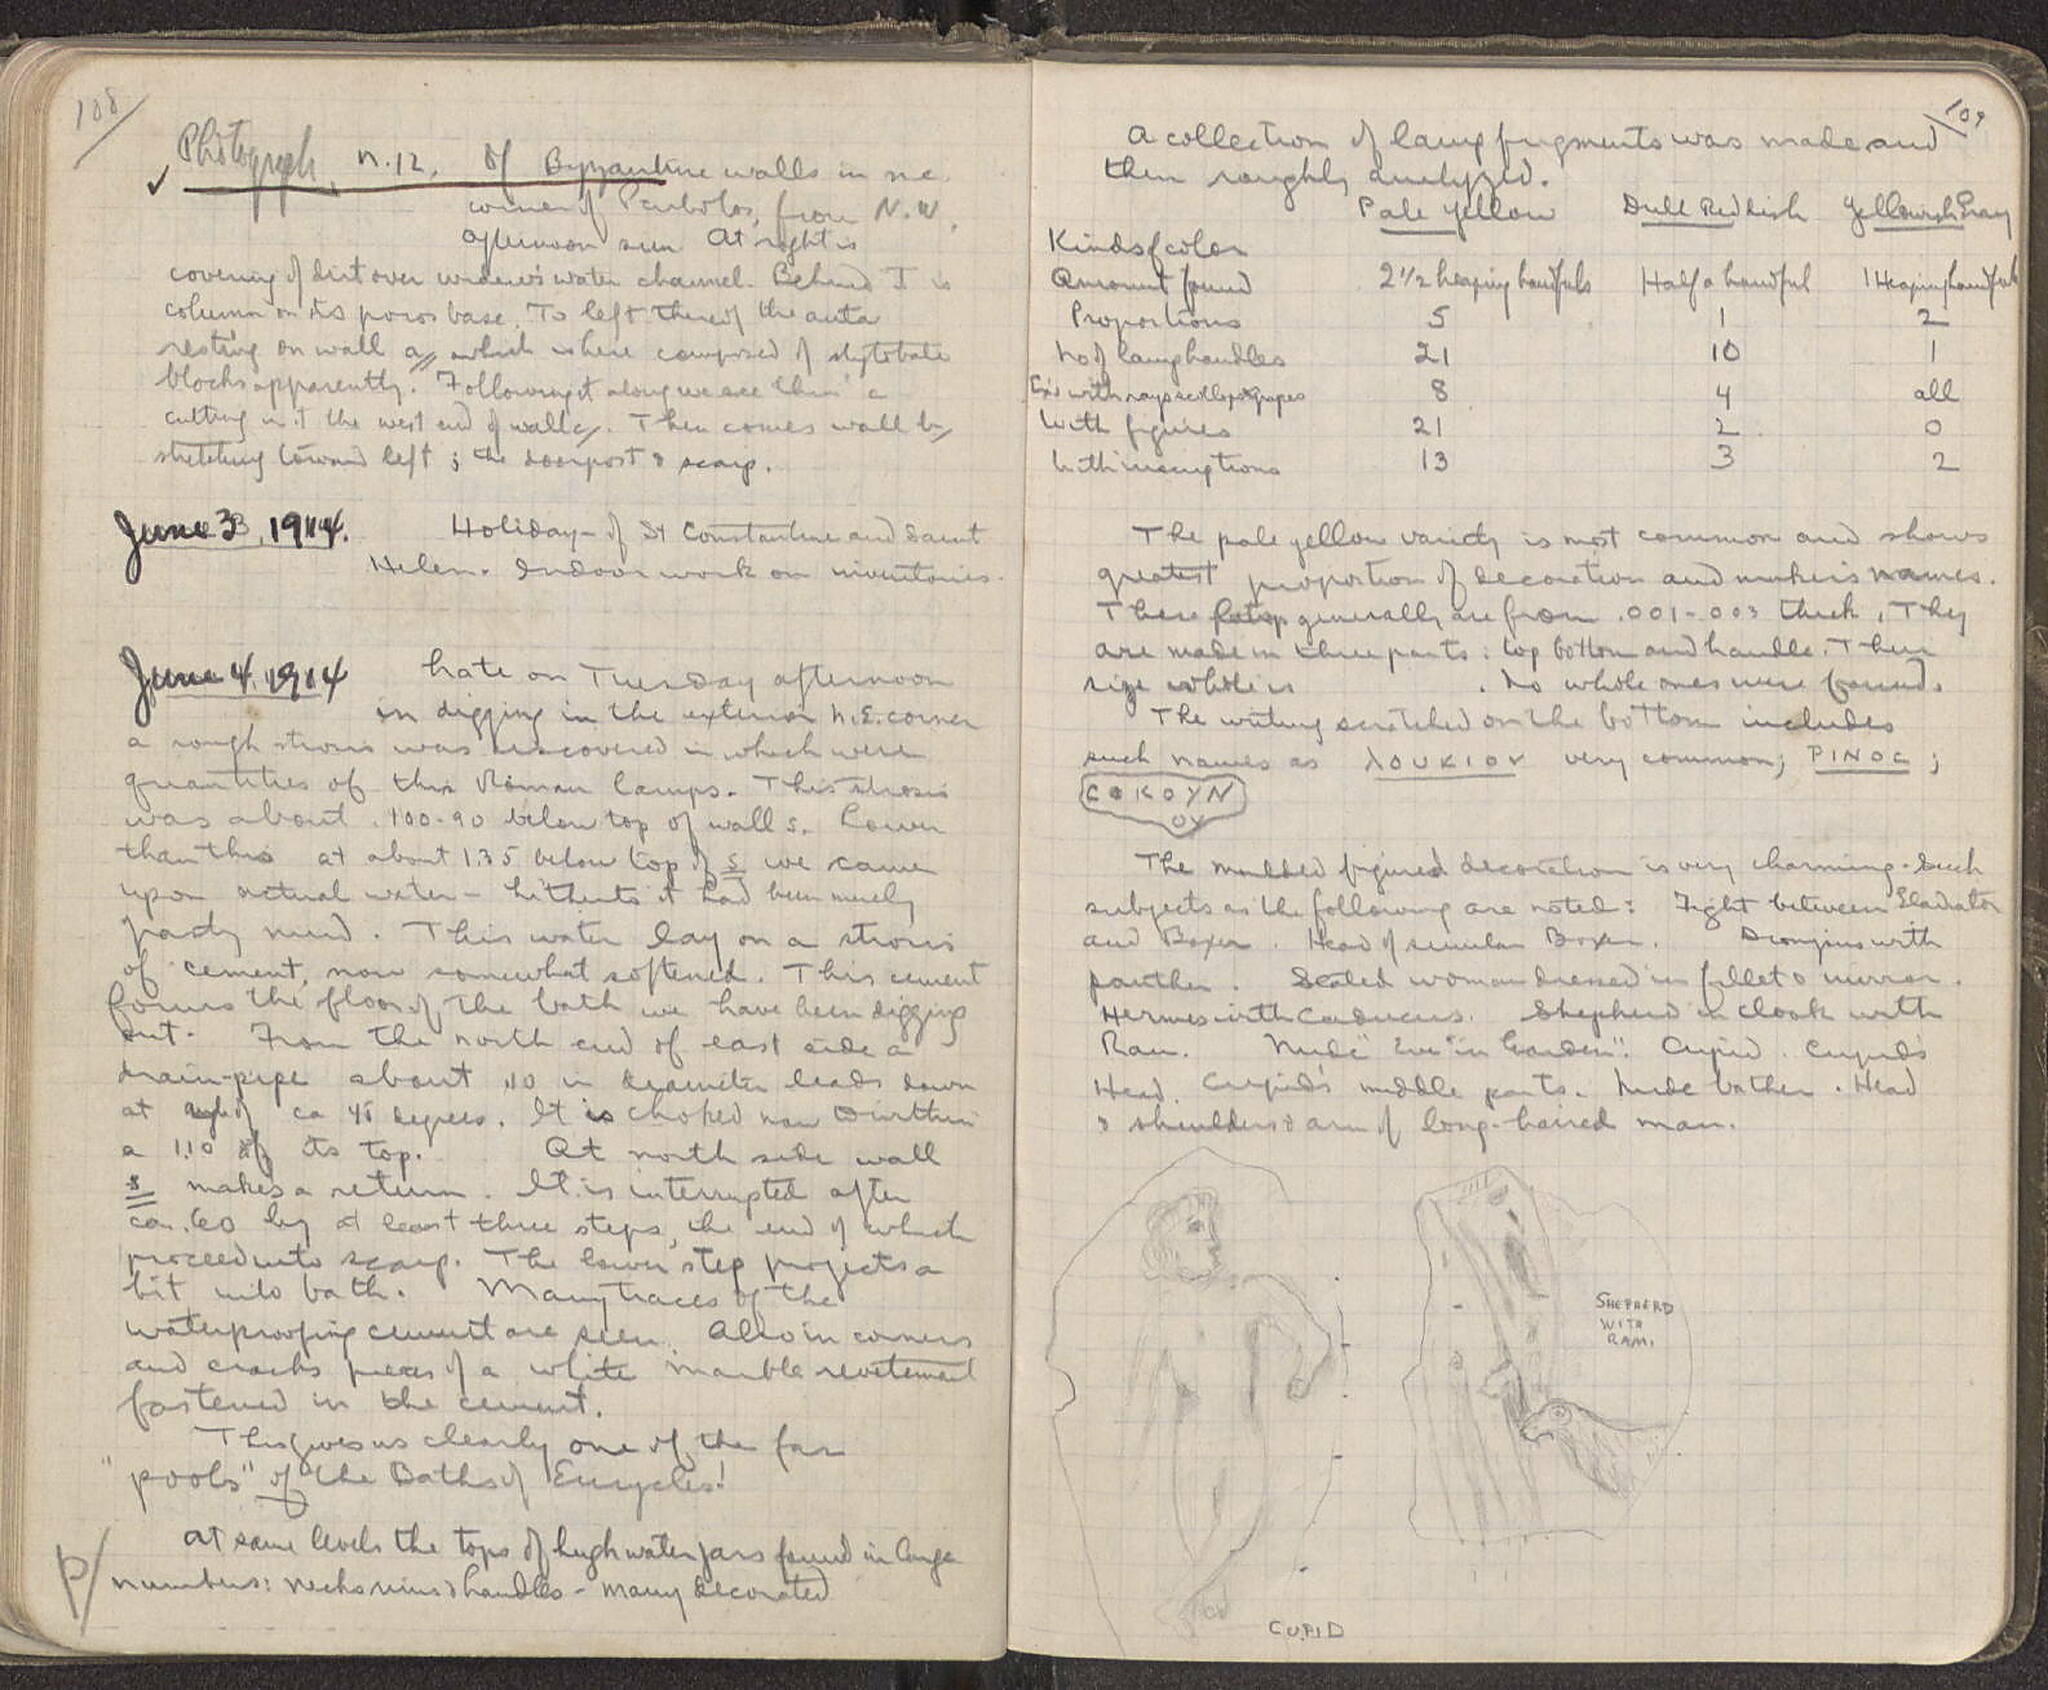 108
Photograph n.12. Of Byzantine walls in n.e.
corner of Peribolos, from N.W.
afternoon sun At right is
covering of dirt over modern water channel. Behind I is
column on its poros base. To left thereof the anta
resting on wall a, which is here composed of stylobate
blocks apparently. Following it along we see then a
cutting in it the west end of wall c. Then comes wall b
stretching toward left; the doorpost & scarp.
June 3, 1914. Holiday - of St Constantine and Saint
Helen. Indoor work on inventories.
June 4, 1914 Late on Tuesday afternoon
in digging in the exterior N.E. corner
a rough strosis was discovered in which were
quantities of thin Roman lamps. This strosis
was about .100-90 below top of wall s. Lower
than this at about 1.35 below top of s we came
upon actual water - hitherto it had been merely
pasty mud. This water lay on a strosis
of cement, now somewhat softened. This cement
forms the floor of the bath we have been digging
out. From the north end of east side a
drain-pipe about .10 in diameter leads down
at angle of ca 45 degrees. It is choked now to within
a 1.10 of its top. At north side wall
s makes a return. It is interrupted after
ca .60 by at least three steps, the end of which
proceed into scarp. The lower step projects a
bit into bath. Many traces of the
waterproofing cement are seen. Also in corners
and cracks pieces of a white marble revetement
fastened in the cement.
This gives us clearly one of the far
"pools" of the Baths of Eurycles!
P/ At same levels the tops of high water jars found in large
numbers: necks rims & handles - many decorated
109
A collection of lamp fragments was made and
then roughly analyzed.
Pale Yellow Dull Reddish Yellowish Gray
Kinds of color
Amount found 2 1/2 heaping handfuls Half a handful 1 Heaping handful
Proportions 5 1 2
No of lamp handles 21 10 1
with rays scallops grapes 8 4 all
With figures 21 2 0
With inscriptions 13 3 2
The pale yellow variety is most common and shows
greatest proportion of decoration and maker's names.
These generally are from .001-003 thick. They
are made in three parts: top bottom and handle. Their
size whole is . No whole ones were found.
The writing scratched on the bottom includes
such names as ΛΟUΚΙΟV very common; PINOC;
COKOYN
OY
The moulded figured decoration is very charming. Such
subjects as the following are noted: Fight between Gladiator
and Boxer. Head of similar Boxer. Dionysius with
panther. Seated woman dressed in fillet & mirror.
Hermes with Caduceus. Shepherd in cloak with
Ram. Nude "Eve in Garden". Cupid. Cupid's
Head. Cupid's middle parts. Nude bather. Head
& shoulders & arm of long-haired man.
SHEPHERD
WITH
RAM.
CUPID